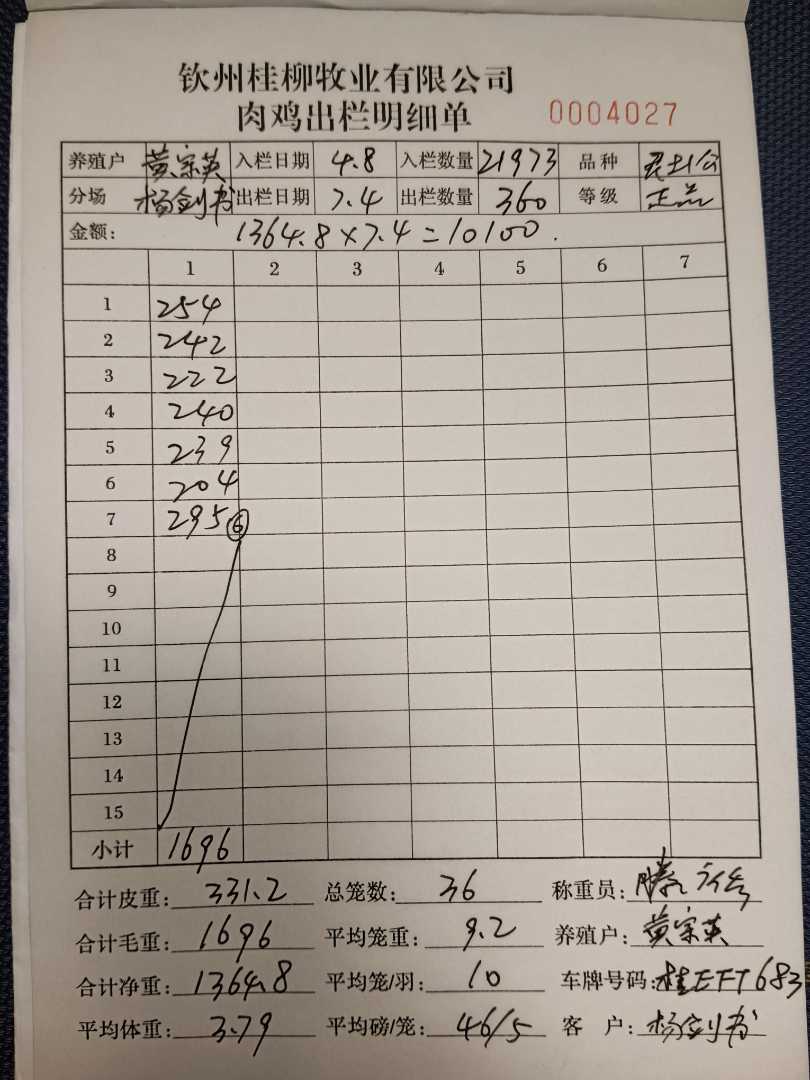 钦州桂柳牧业有限公司
肉鸡出栏明细单 0004027
养殖户 黄宗英 入栏日期 4.8 入栏数量 21973 品种
分场 杨剑书 出栏日期 7.4 出栏数量 360 等级 正品
金额: 1364.8×7.4=10100.
1 2 3 4 5 6 7
1 254
2 242
3 222
4 240
5 239
6 204
7 295 ⑥
8
9
10
11
12
13
14
15
小计 1696
合计皮重: 331.2 总笼数: 36 称重员:
合计毛重: 1696 平均笼重: 9.2 养殖户: 黄宗英
合计净重: 1364.8 平均笼/羽: 10 车牌号码: 桂EFT683
平均体重: 3.79 平均磅/笼: 46/5 客户: 杨剑书